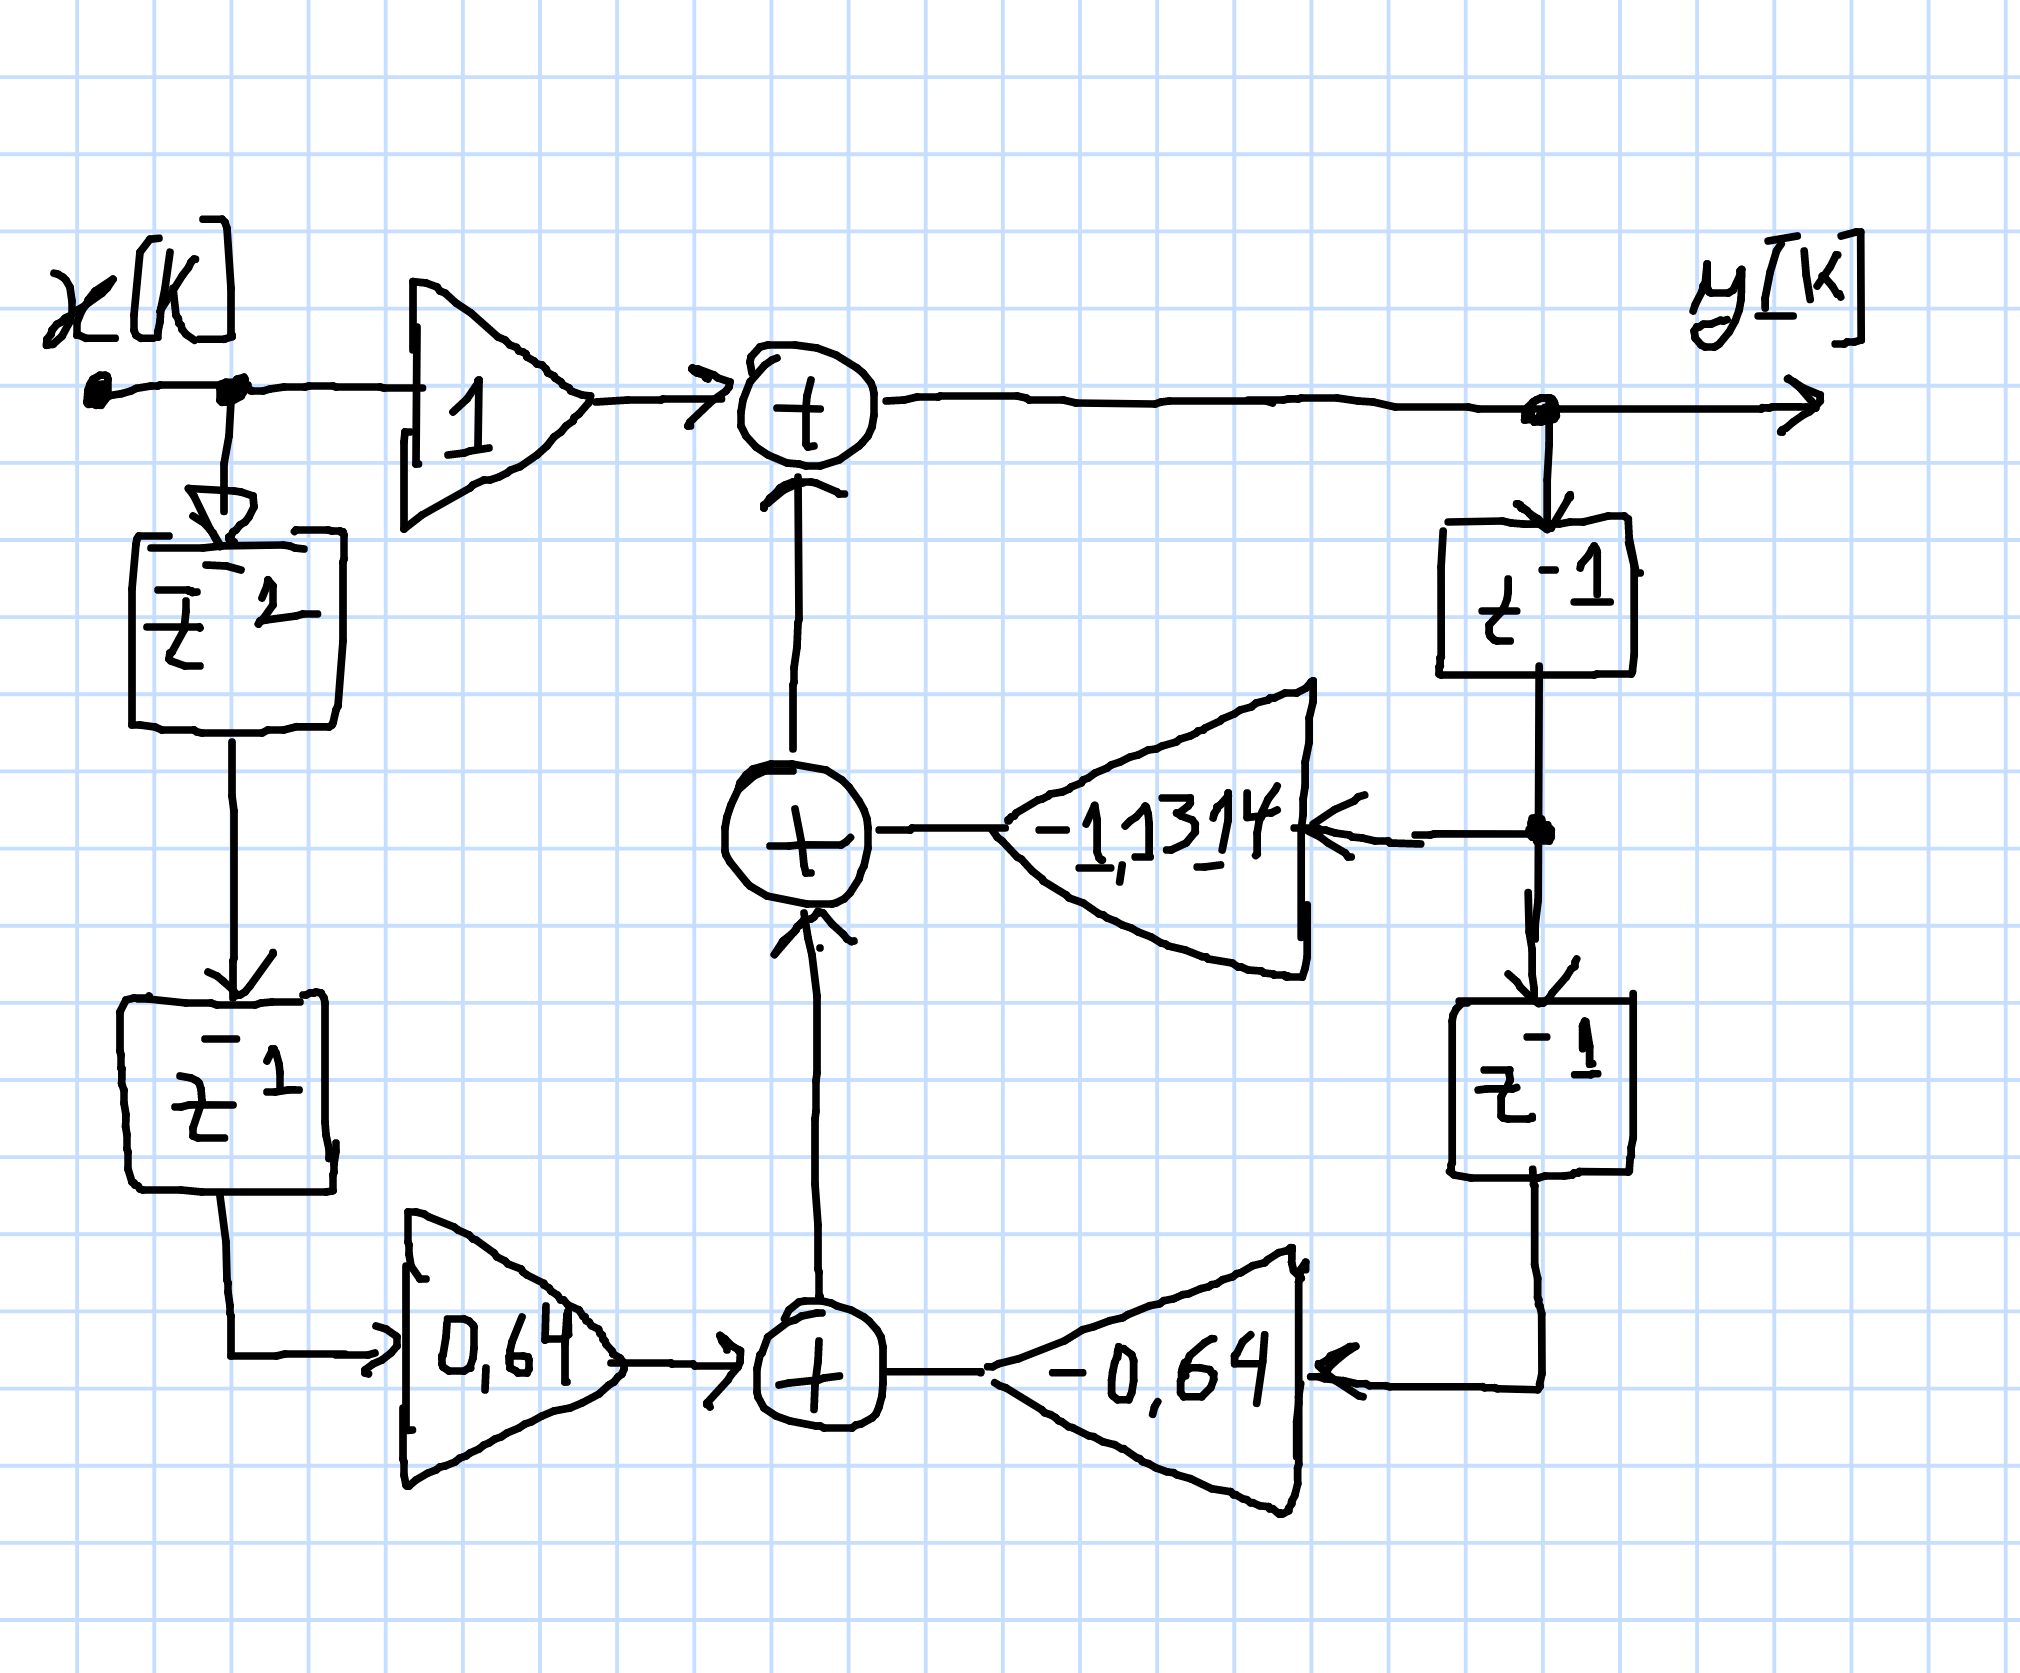 x[k]
y[k]
1
+
z^-1
z^-1
+
-1,1314
z^-1
z^-1
0,64
+
-0,64